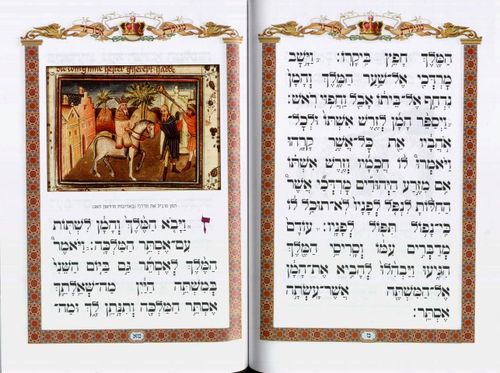 הַמֶּלֶךְ חָפֵץ בִּיקָרוֹ׃ וַיָּשָׁב
מָרְדֳּכַי אֶל־שַׁעַר הַמֶּלֶךְ וְהָמָן
נִדְחַף אֶל־בֵּיתוֹ אָבֵל וַחֲפוּי רֹאשׁ׃
וַיְסַפֵּר הָמָן לְזֶרֶשׁ אִשְׁתּוֹ וּלְכָל־
אֹהֲבָיו אֵת כָּל־אֲשֶׁר קָרָהוּ
וַיֹּאמְרוּ לוֹ חֲכָמָיו וְזֶרֶשׁ אִשְׁתּוֹ
אִם מִזֶּרַע הַיְּהוּדִים מָרְדֳּכַי אֲשֶׁר
הַחִלּוֹתָ לִנְפֹּל לְפָנָיו לֹא־תוּכַל לוֹ
כִּי־נָפוֹל תִּפּוֹל לְפָנָיו׃ עוֹדָם
מְדַבְּרִים עִמּוֹ וְסָרִיסֵי הַמֶּלֶךְ
הִגִּיעוּ וַיַּבְהִלוּ לְהָבִיא אֶת־הָמָן
אֶל־הַמִּשְׁתֶּה אֲשֶׁר־עָשְׂתָה
אֶסְתֵּר׃
המן מרכיב את מרדכי
ז וַיָּבֹא הַמֶּלֶךְ וְהָמָן לִשְׁתּוֹת
עִם־אֶסְתֵּר הַמַּלְכָּה׃ וַיֹּאמֶר
הַמֶּלֶךְ לְאֶסְתֵּר גַּם בַּיּוֹם הַשֵּׁנִי
בְּמִשְׁתֵּה הַיַּיִן מַה־שְּׁאֵלָתֵךְ
אֶסְתֵּר הַמַּלְכָּה וְתִנָּתֵן לָךְ וּמַה־